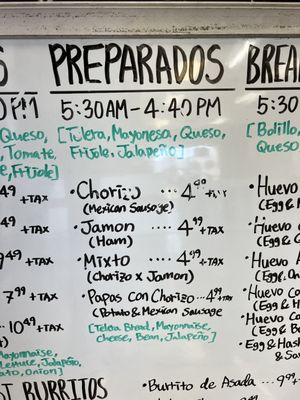 PREPARADOS
5:30AM - 4:40 PM
[Telera, Mayonesa, Queso,
Frijole, Jalapeño]
• Chorizo .... 4.99 +TAX
(Mexican Sausage)
• Jamon .... 4.99 +TAX
(Ham)
• Mixto .... 4.99 +TAX
(Chorizo x Jamon)
• Papas con Chorizo... 4.99 +TAX
(Potato & Mexican Sausage
[Telera Bread, Mayonnaise,
Cheese, Bean, Jalapeño]
Queso,
Tomate,
Frijole]
49 +TAX
49 +TAX
9.49 +TAX
7.99 +TAX
10.49 +TAX
Mayonnaise,
Lettuce, Jalapeño,
Onion]
BURRITOS
BREA
5:30
[Bolillo
Queso
• Huevo
(Egg &
• Huevo
(Egg &
• Huevo
(Egg,
• Huevo Co
(Egg &
• Huevo Co
(Egg & B
• Egg & Hash
& So
• Burrito de Asada ... 9.99